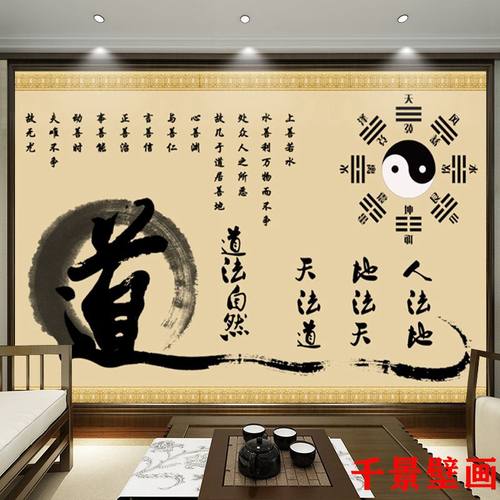 上善若水
水善利万物而不争
处众人之所恶
故几于道居善地
心善渊
与善仁
言善信
正善治
事善能
动善时
夫唯不争
故无尤
天
风
水
火
坤
人法地
地法天
天法道
道法自然
道
千景壁画